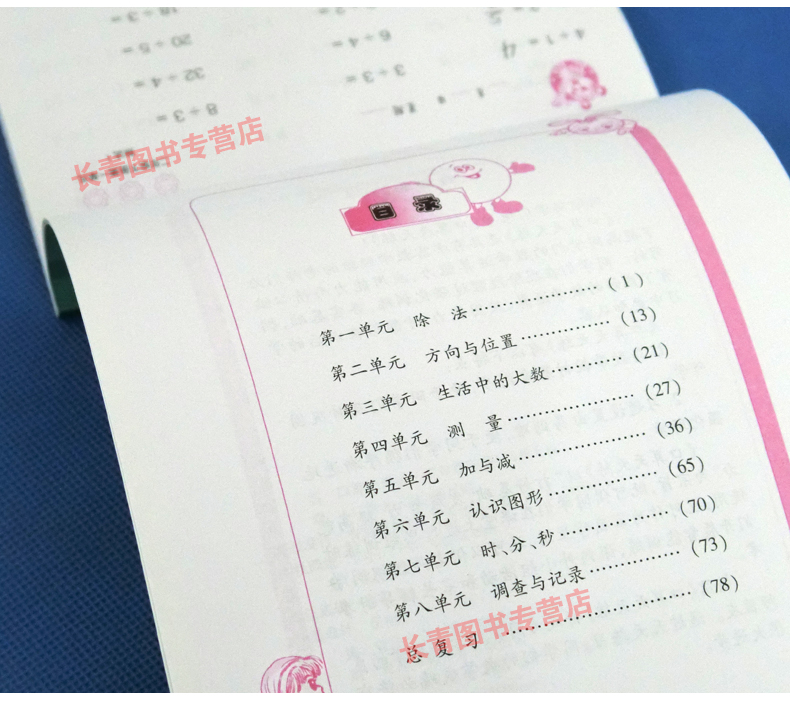 18÷3=
20÷5=
32÷4=
8÷3=
6÷4=
3÷3=
4÷1=4
长青图书专营店
目 录
第一单元 除 法……………………(1)
第二单元 方向与位置……………(13)
第三单元 生活中的大数…………(21)
第四单元 测 量……………………(27)
第五单元 加与减…………………(36)
第六单元 认识图形………………(65)
第七单元 时、分、秒………………(70)
第八单元 调查与记录……………(73)
总复习………………………………(78)
长青图书专营店